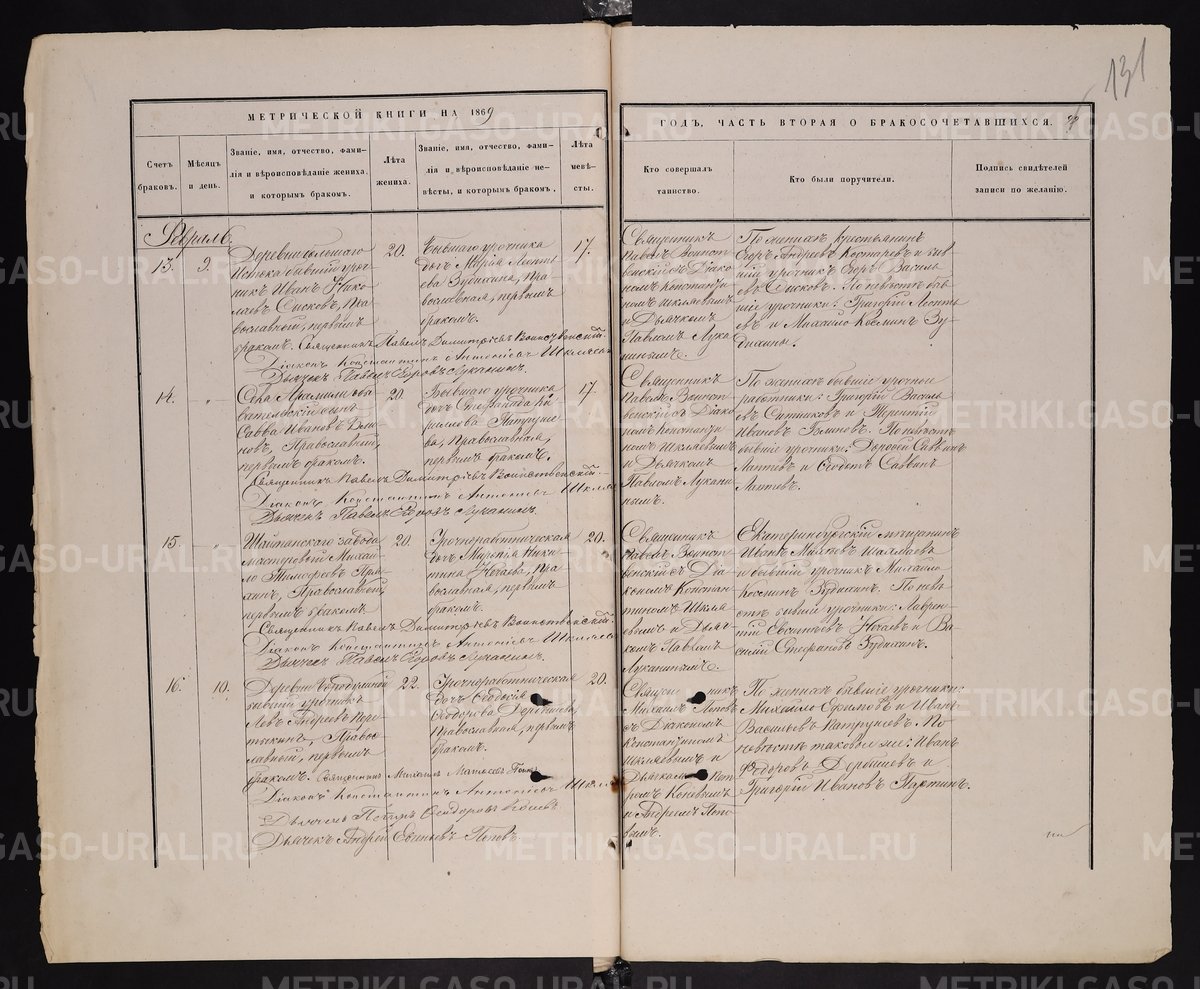 131
МЕТРИЧЕСКОЙ КНИГИ НА 1869
ГОДЪ, ЧАСТЬ ВТОРАЯ О БРАКОСОЧЕТАВШИХСЯ.
Счетъ браковъ.
Мѣсяцъ и день.
Званіе, имя, отчество, фами-
лія и вѣроисповѣданіе жениха,
и которымъ бракомъ.
Лѣта жениха.
Званіе, имя, отчество, фами-
лія и вѣроисповѣданіе не-
вѣсты, и которымъ бракомъ.
Лѣта невѣ-
сты.
Кто совершалъ
таинство.
Кто были поручители.
Подпись свидѣтелей
записи по желанію.
Февраль.
13.
9.
Истока бывшій уроч-
никъ Иванъ Нико-
лаевъ Сысковъ, Пра-
вославный, первымъ
бракомъ.
20.
Бывшаго урочника
дочь Марія Леонть-
ева Зудихина, Пра-
вославная, первымъ
бракомъ.
17.
Священникъ
Павелъ Воинст-
венскій съ Діако-
номъ Константи-
номъ Шкляевымъ
и Дьячкомъ
Павломъ Лука-
нинымъ.
По женихѣ крестьянинъ
Егоръ Андреевъ Костаревъ и быв-
шій урочникъ Егоръ Василь-
евъ Сысковъ. По невѣстѣ быв-
шіе урочники: Григорій Леонть-
евъ и Михайло Козминъ Зу-
дихины.
Священникъ Павелъ Димитріевъ Воинственскій.
Діаконъ Константинъ Антоніевъ Шкляевъ
Дьячекъ Павелъ Егоровъ Луканинъ.
14.
"
Села Арамили оба-
вательскій сынъ
Савва Ивановъ
новъ, Православный,
первымъ бракомъ.
20.
Бывшаго урочника
дочь Степанида Ки-
рилова Патруше-
ва, Православная,
первымъ бракомъ.
17.
Священникъ
Павелъ Воинст-
венскій съ Діако-
номъ Шкляевымъ
и Дьячкомъ
Павломъ Лукани-
нымъ.
По женихѣ бывшіе урочные
работники: Григорій Василь-
евъ Ситниковъ и Терентій
Ивановъ Блиновъ. По невѣстѣ
бывшіе урочники: Дорофей Саввинъ
Лаптевъ и Ѳедотъ Саввинъ
Лаптевъ.
Священникъ Павелъ Димитріевъ Воинственскій.
Діаконъ Константинъ Антоніевъ Шкляевъ
Дьячекъ Павелъ Егоровъ Луканинъ.
15.
"
Шайтанскаго завода
мастеровый Михай-
ло Тимофеевъ
Православный,
первымъ бракомъ
20.
Урочноработническая
дочь Марѳа Ники-
тина Нечаева, Пра-
вославная, первымъ
бракомъ.
20.
Священникъ
Павелъ Воинст-
венскій съ Діа-
кономъ Констан-
тиномъ Шкля-
евымъ и Дьяч-
комъ Павломъ
Луканинымъ.
Екатеринбургскій мѣщанинъ
Иванъ
и бывшій урочникъ Михайло
Козминъ Зудихинъ. По невѣ-
стѣ бывшіе урочники: Лаврен-
тій Евсеньевъ Нечаевъ и Ва-
силій Стефановъ Зудихинъ.
Священникъ Павелъ Димитріевъ Воинственскій.
Діаконъ Константинъ Антоніевъ Шкляевъ
Дьячекъ Павелъ Егоровъ Луканинъ.
16.
10.
бывшій урочникъ
Левъ Андреевъ Пер-
тыкинъ, Право-
славный, первымъ
бракомъ.
22.
Урочноработническая
дочь Ѳедосія
Ѳедорова Дербышева,
Православная, первымъ
бракомъ.
20.
Священникъ
Михаилъ Поповъ
съ Діакономъ
Константиномъ
Шкляевымъ и
Дьячками: Пет-
ромъ Коневымъ
и Андреемъ Попо-
вымъ.
По женихѣ бывшіе урочники:
Михайло Ефимовъ и Иванъ
Васильевъ Патрушевъ. По
невѣстѣ таковые же: Иванъ
Ѳедоровъ Дербышевъ и
Григорій Ивановъ Партинъ.
Священникъ Михаилъ Матвѣевъ Поповъ
Діаконъ Константинъ Антоніевъ Шкляевъ
Дьячекъ Петръ Сидоровъ Коневъ
Дьячекъ Андрей Евгеньевъ Поповъ
METRIKI.GASO-URAL.RU